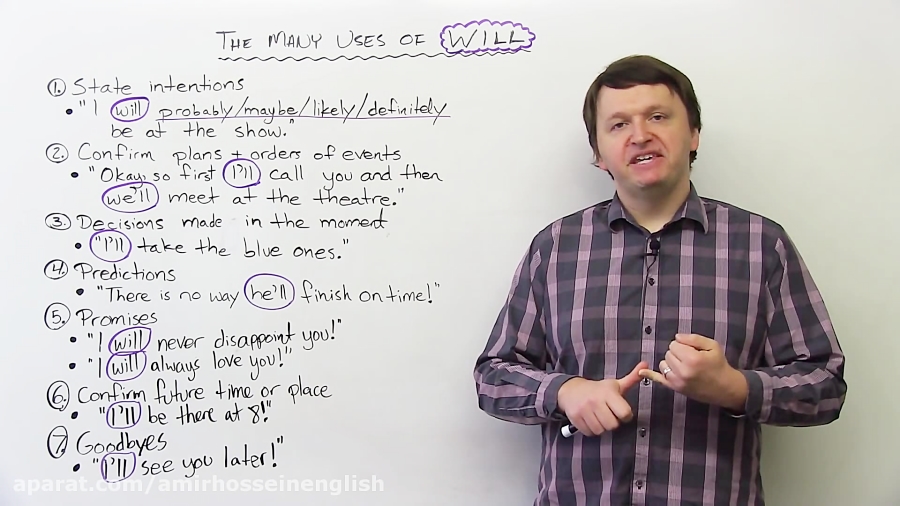 The Many Uses of WILL
1. State intentions
• "I will probably/maybe/likely/definitely
be at the show."
2. Confirm plans + orders of events
• "Okay, so first I'll call you and then
we'll meet at the theatre."
3. Decisions made in the moment
• "I'll take the blue ones."
4. Predictions
• "There is no way he'll finish on time!"
5. Promises
• "I will never disappoint you!"
• "I will always love you!"
6. Confirm future time or place
• "I'll be there at 8!"
7. Goodbyes
• "I'll see you later!"
aparat.com/amirhosseinenglish